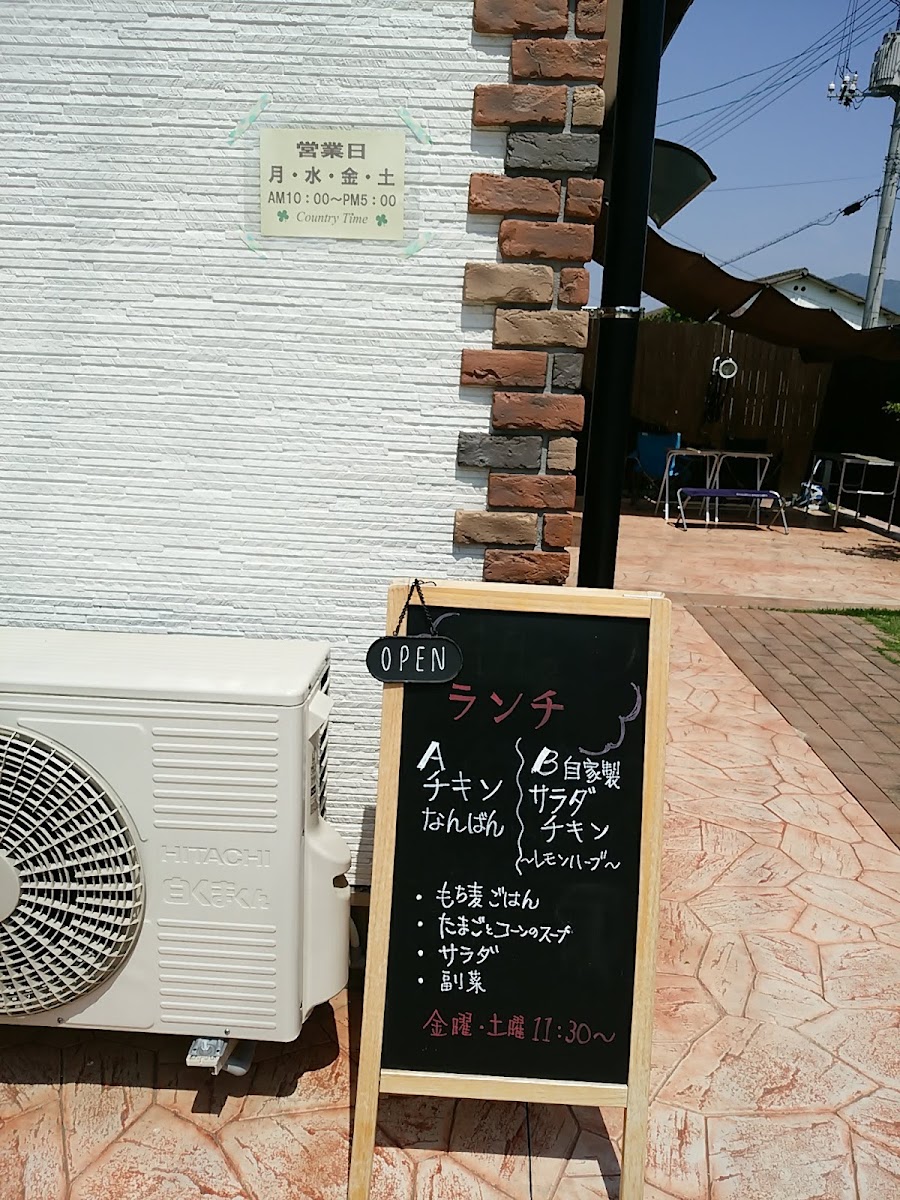 営業日
月・水・金・土
AM10:00～PM5:00
Country Time
OPEN
ランチ
A
チキン
なんばん
B 自家製
サラダ
チキン
～レモンハーブ～
・もち麦ごはん
・たまごとコーンのスープ
・サラダ
・副菜
金曜・土曜 11:30～
HITACHI
白くまくん